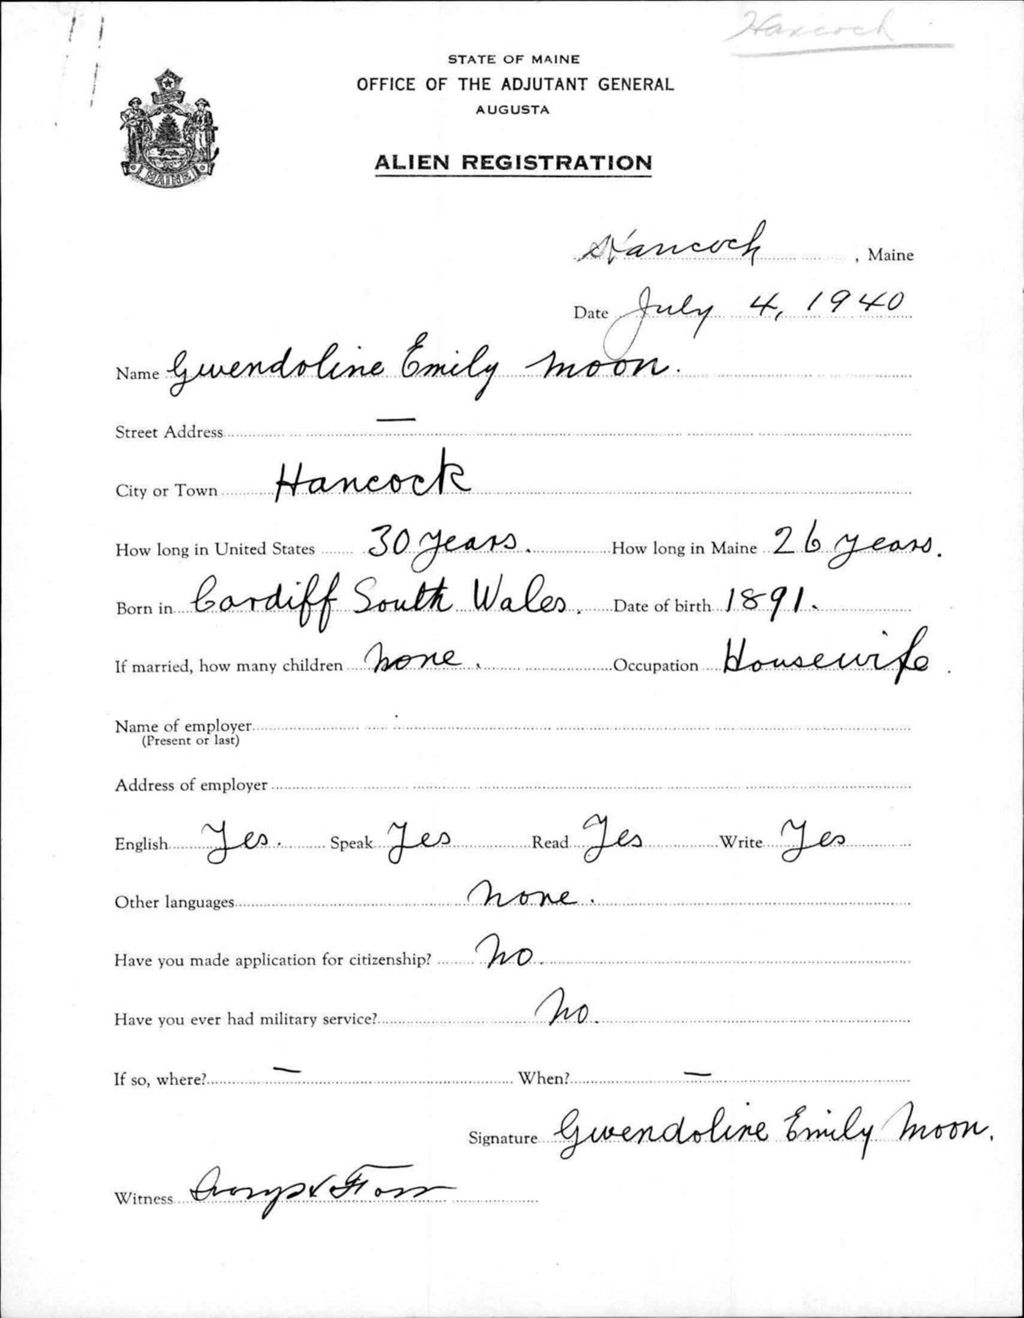 Hancock
STATE OF MAINE
OFFICE OF THE ADJUTANT GENERAL
AUGUSTA
ALIEN REGISTRATION
MAINE
Hancock, Maine
Date July 4, 1940
Name Gwendoline Emily Moon.
Street Address —
City or Town Hancock
How long in United States 30 years. How long in Maine 26 years.
Born in Cardiff South Wales. Date of birth 1891.
If married, how many children none. Occupation Housewife.
Name of employer
(Present or last)
Address of employer
English Yes. Speak Yes Read Yes Write Yes
Other languages none.
Have you made application for citizenship? No.
Have you ever had military service? No.
If so, where? — When? —
Signature Gwendoline Emily Moon.
Witness